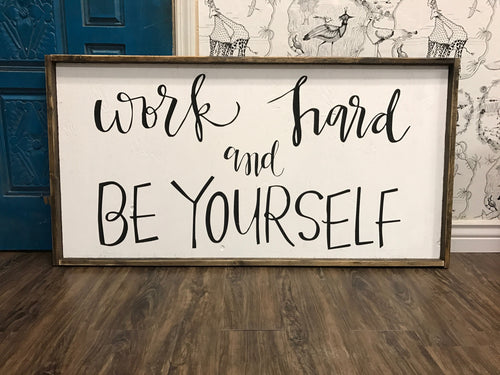 work hard
and
BE YOURSELF